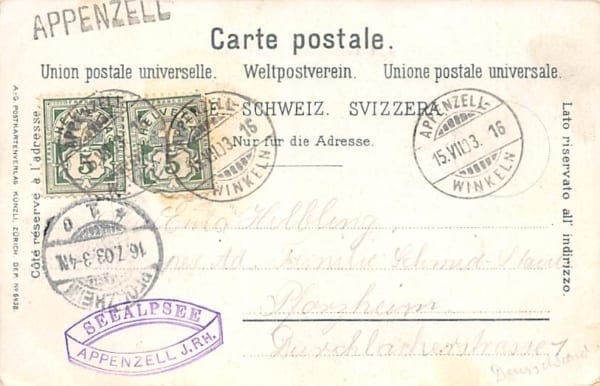 APPENZELL
Carte postale.
Union postale universelle. Weltpostverein. Unione postale universale.
SCHWEIZ. SVIZZERA
Nur für die Adresse.
Côté réservé à l'adresse.
A.-G. POSTKARTENVERLAG KÜNZLI, ZÜRICH. DEP. Nº 6938.
Lato riservato all' indirizzo.
HELVETIA
5
HELVETIA
5
APPENZELL-
15.VII.03. 16
WINKELN
APPENZELL-
15.VII.03. 16
WINKELN
PFORZHEIM
16.7.03.3-4N.
SEEALPSEE
APPENZELL J.RH.
Helbling
per Ad. Familie Schmid
Pforzheim
Durlacherstrasse
Deutschland